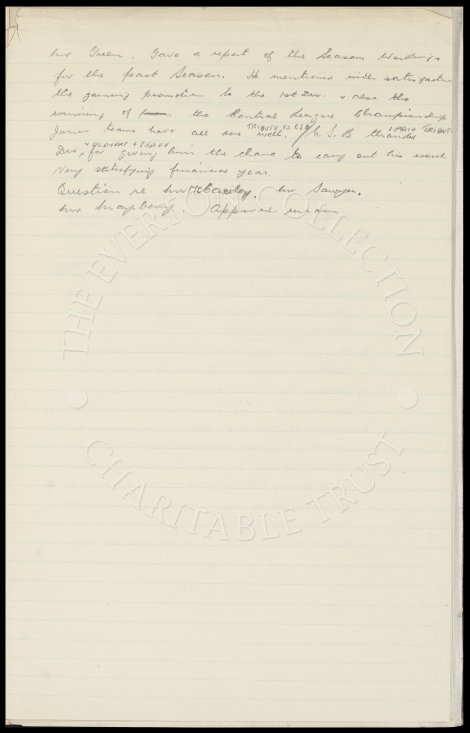 Mr Green. Gave a report of the Season Workings
for the past Season. He mentioned with satisfaction
the gaining promotion to the 1st Div. & also the
winning of the Central League Championship
Junior teams have all done well. TRIBUTE TO C. S. B thanked & PAID TRIBUTE
Dirs, & PLAYERS & STAFF for giving him the chance to carry out his work.
Very satisfying financial year.
Question re Mr Mr Sawyer.
Mr Mayberry. Approved
THE EVERTON COLLECTION
CHARITABLE TRUST